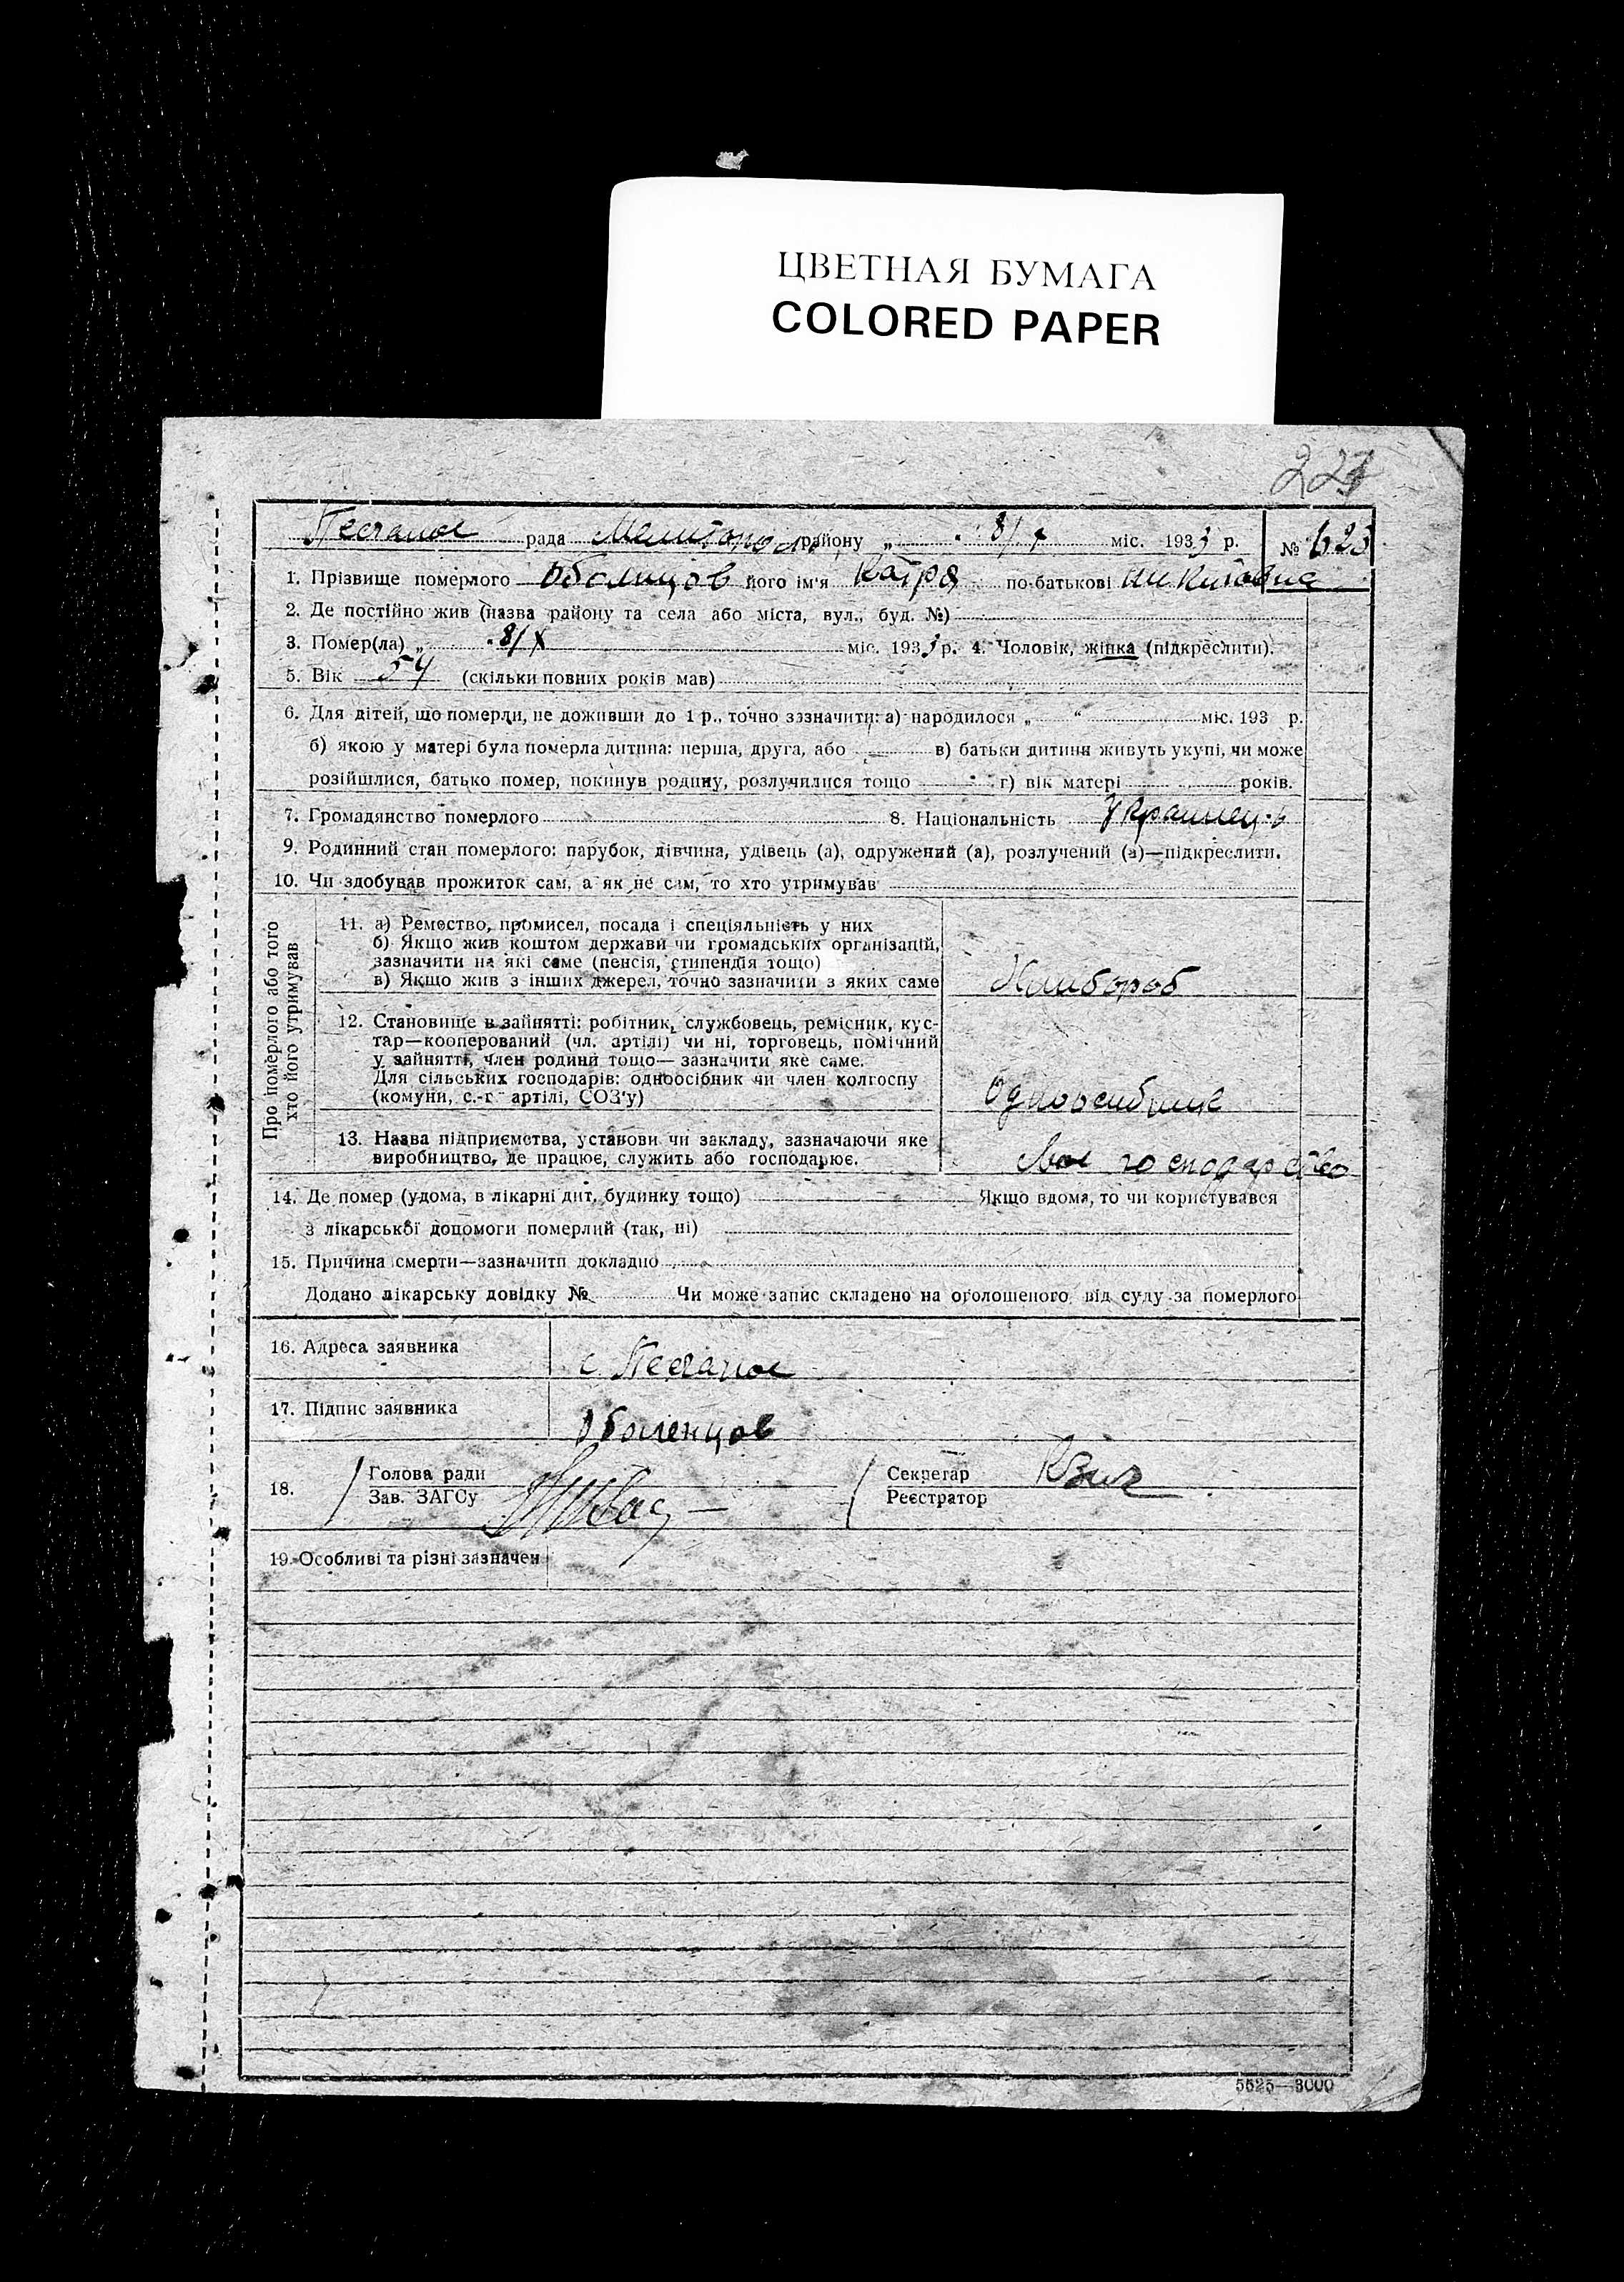 ЦВЕТНАЯ БУМАГА
COLORED PAPER
223
Песчаное рада Мелитополь району „ 8/X міс. 1933 р. № 623
1. Прізвище померлого Оболенцов його ім'я Катря по-батькові Никитовна
2. Де постійно жив (назва району та села або міста, вул., буд. №)
3. Помер(ла) „ 8/X міс. 1933 р. 4. Чоловік, жінка (підкреслити).
5. Вік 54 (скільки повних років мав)
6. Для дітей, що померли, не доживши до 1 р., точно зазначити: а) народилося „ “ міс. 193 р.
б) якою у матері була померла дитина: перша, друга, або в) батьки дитини живуть укупі, чи може
розійшлися, батько помер, покинув родину, розлучилися тощо г) вік матері років.
7. Громадянство померлого 8. Національність
9. Родинний стан померлого: парубок, дівчина, удівець (а), одружений (а), розлучений (а)—підкреслити.
10. Чи здобував прожиток сам, а як не сам, то хто утримував
Про померлого або того
хто його утримував
11. а) Ремество, промисел, посада і спеціяльність у них
б) Якщо жив коштом держави чи громадських організацій,
зазначити на які саме (пенсія, стипендія тощо)
в) Якщо жив з інших джерел, точно зазначити з яких саме
Хлибороб
12. Становище в зайнятті: робітник, службовець, ремісник, кус-
тар—кооперований (чл. артілі) чи ні, торговець, помічний
у зайнятті, член родини тощо— зазначити яке саме.
Для сільських господарів: одноосібник чи член колгоспу
(комуни, с.-г артілі, СОЗ'у)
13. Назва підприємства, установи чи закладу, зазначаючи яке
виробництво, де працює, служить або господарює.
Свое господарство
14. Де помер (удома, в лікарні дит. будинку тощо) Якщо вдома, то чи користувався
з лікарської допомоги померлий (так, ні)
15. Причина смерти—зазначити докладно
Додано лікарську довідку № Чи може запис складено на оголошеного від суду за померлого
16. Адреса заявника с Песчаное
17. Підпис заявника Оболенцов
18. Голова ради
Зав. ЗАГСу
Секретар
Реєстратор
19. Особливі та різні зазначен
5525—3000